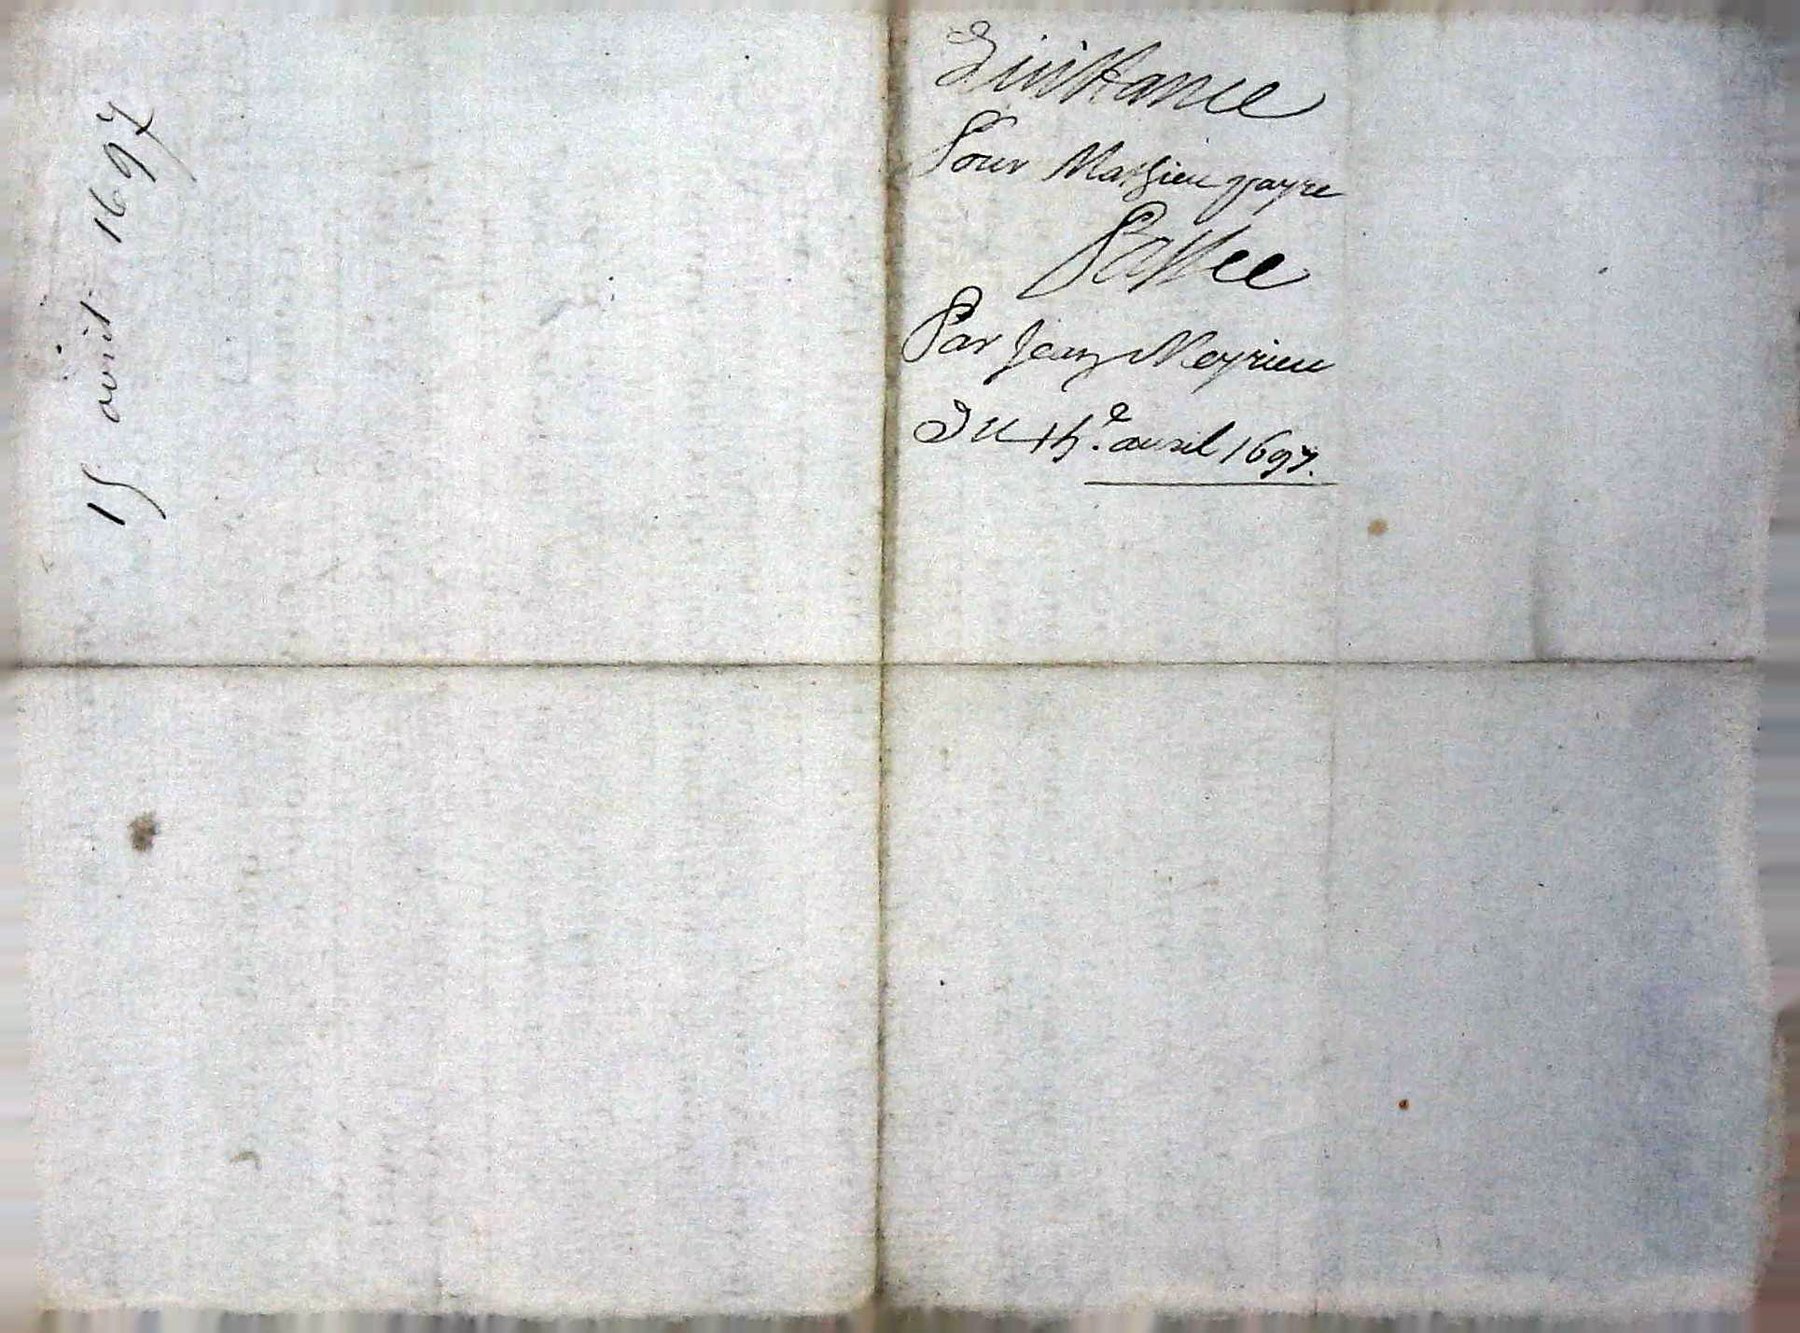 15 avril 1697
Quittance
Pour Mathieu payre
Passee
Par Jean Meyrieu
Du 15e. avril 1697.